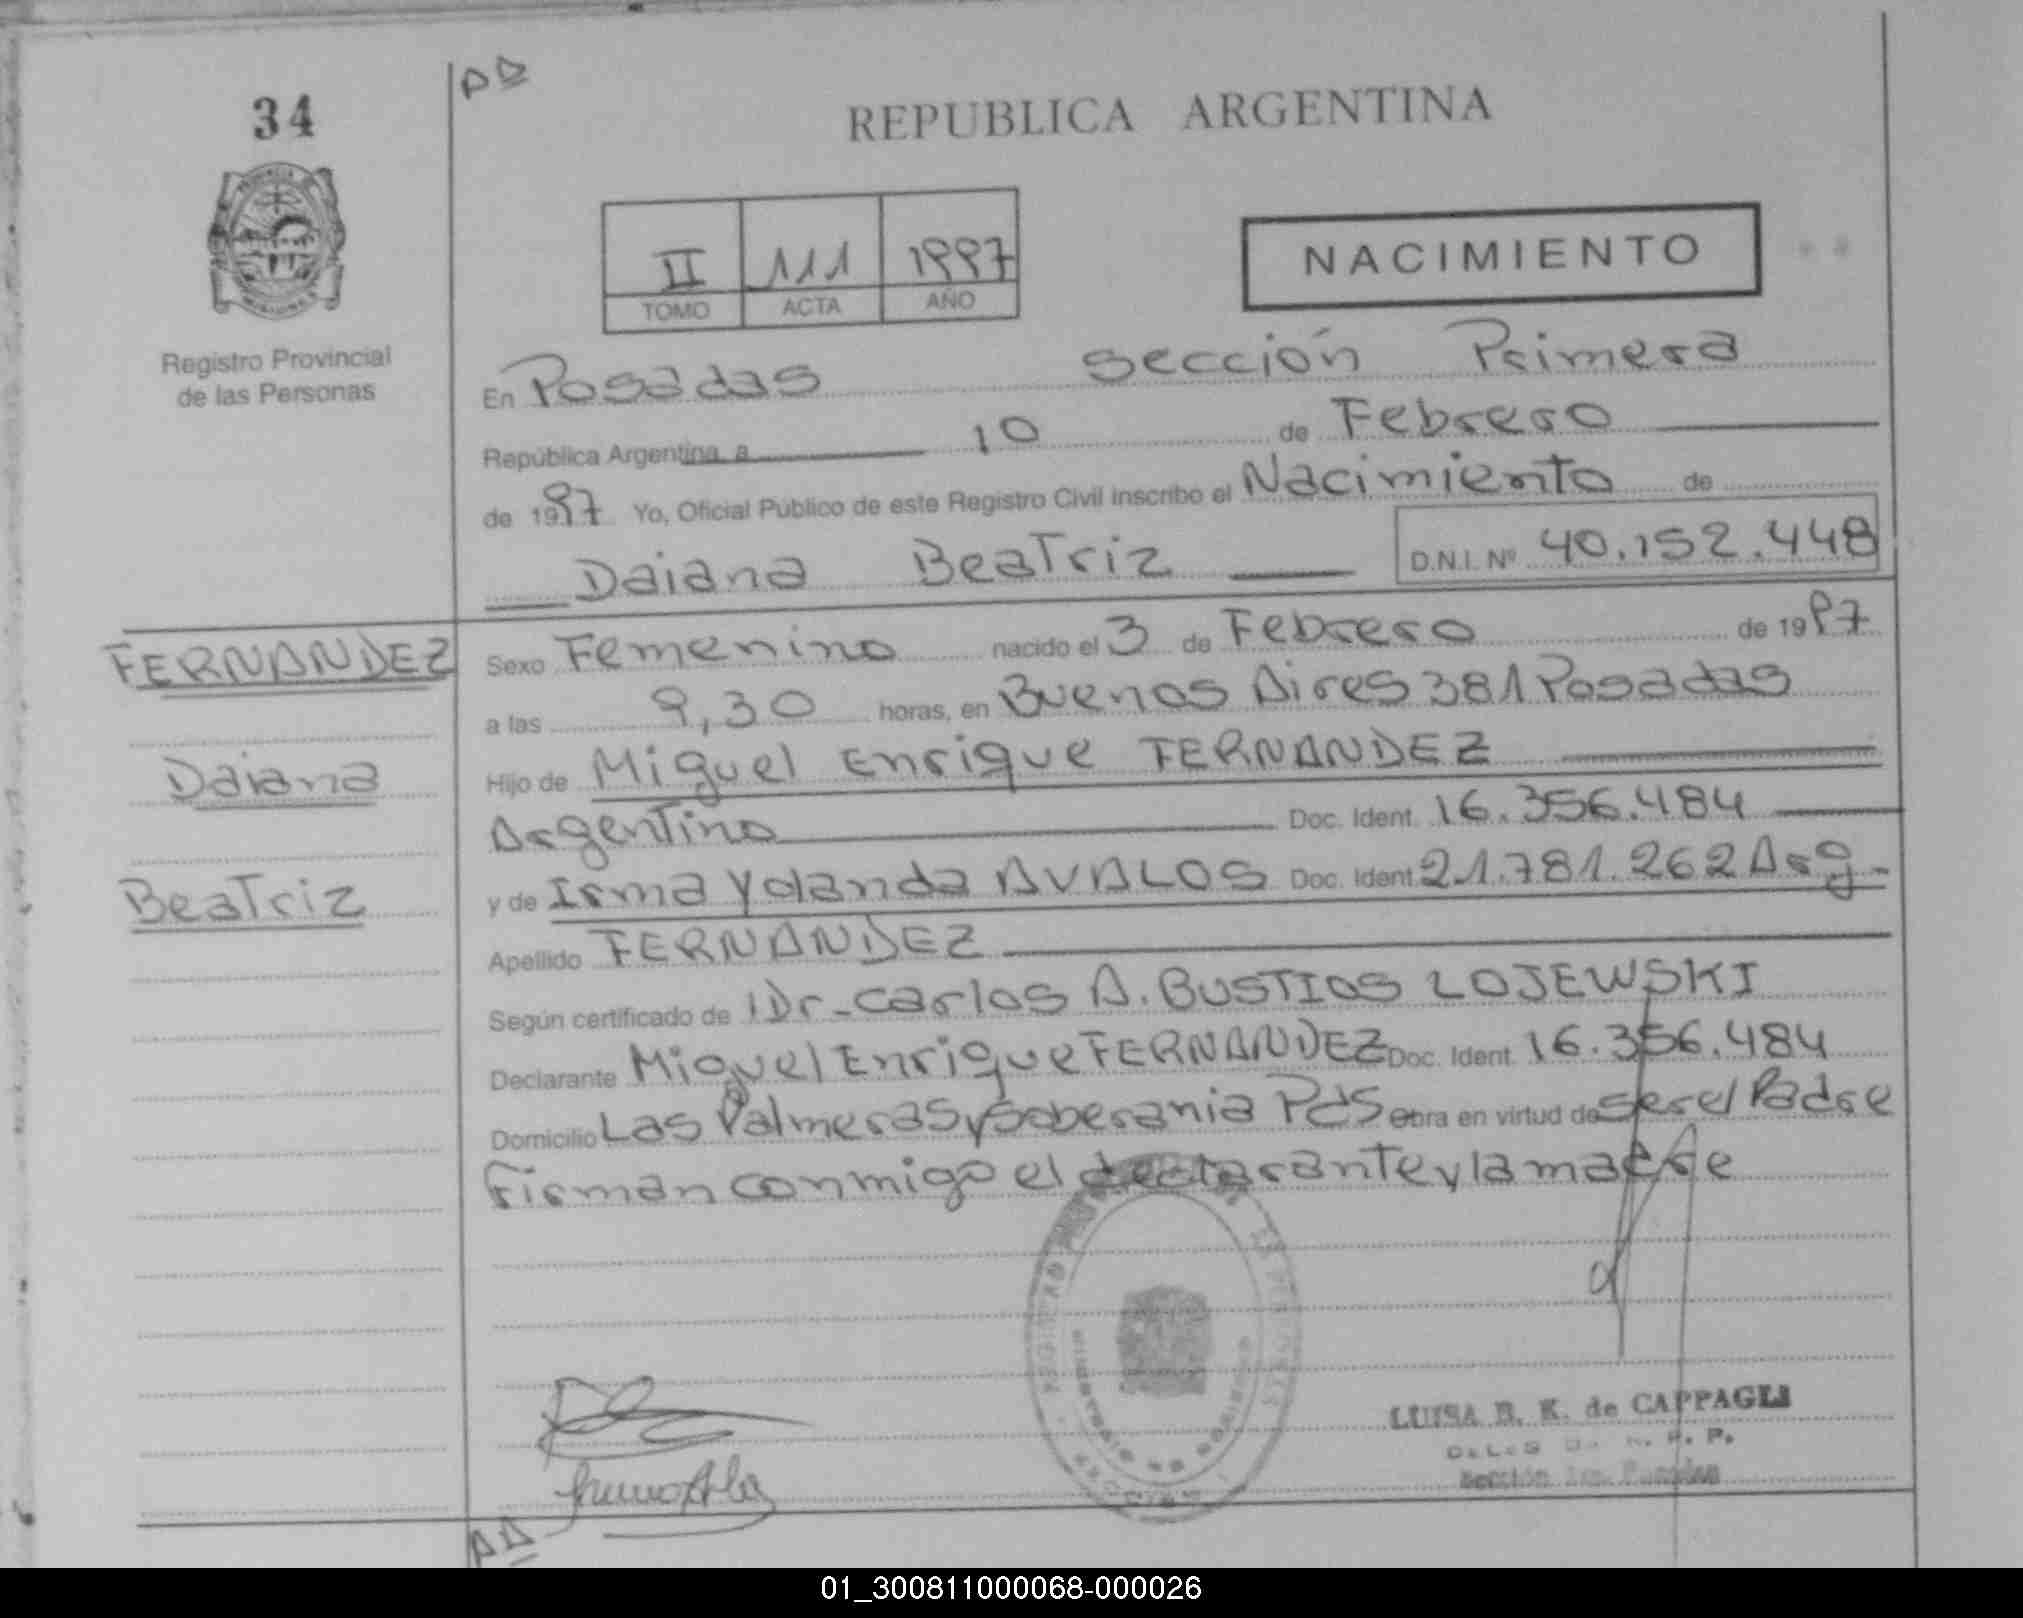 34
REPUBLICA ARGENTINA
II 111 1997
TOMO ACTA AÑO
NACIMIENTO
Registro Provincial
de las Personas
En Posadas sección Primera
República Argentina, a 10 de Febrero
de 1997 Yo, Oficial Público de este Registro Civil inscribo el Nacimiento de
Daiana Beatriz D.N.I. Nº 40.152.448
FERNANDEZ
Daiana
Beatriz
Sexo Femenino nacido el 3 de Febrero de 1997
a las 9,30 horas, en Buenos Aires 381 Posadas
Hijo de Miguel Enrique FERNANDEZ
Argentino Doc. Ident. 16.356.484
y de Irma Yolanda AVALOS Doc. Ident. 21.781.262 Arg.
Apellido FERNANDEZ
Según certificado de Dr. Carlos A. BUSTIOS LOJEWSKI
Declarante Miguel Enrique FERNANDEZ Doc. Ident. 16.356.484
Domicilio Las Palmeras y Soberania Pds obra en virtud de ser el Padre
firman conmigo el declarante y la madre
LUISA B. K. de CAPPAGLI
01_300811000068-000026